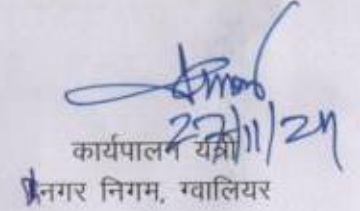 27/11/24
कार्यपालन यंत्री
नगर निगम, ग्वालियर